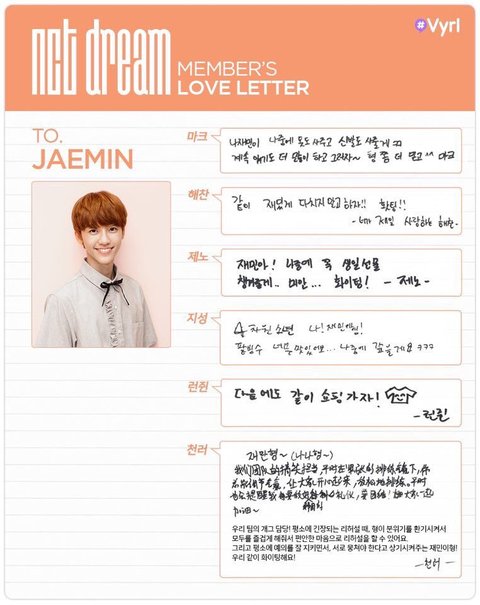 nct dream
MEMBER'S
LOVE LETTER
#Vyrl
TO.
JAEMIN
마크
나재민이 나중에 옷도 사주고 신발도 사줄게
계속 얘기도 더 많이 하고 그러자~ 형 좀 더 믿고 ^^ 마크
해찬
같이 재밌게 다치지 말고 하자!! 핫팅!!
- 네가 제일 사랑하는 해찬 -
제노
재민아! 나중에 꼭 생일선물
챙겨줄게.. 미안... 화이팅! - 제노 -
지성
나! 재민이형!
팥빙수 너무 맛있어요... 나중에 갚을게요 ㅋㅋㅋ
런쥔
다음에도 같이 쇼핑 가자!
- 런쥔
천러
재민형~ (나나형~)
우리 팀의 개그 담당! 평소에 긴장되는 리허설 때, 형이 분위기를 환기시켜서
모두를 즐겁게 해줘서 편안한 마음으로 리허설을 할 수 있어요.
그리고 평소에 예의를 잘 지키면서, 서로 뭉쳐야 한다고 상기시켜주는 재민이형!
우리 같이 화이팅해요!
- 천러 -